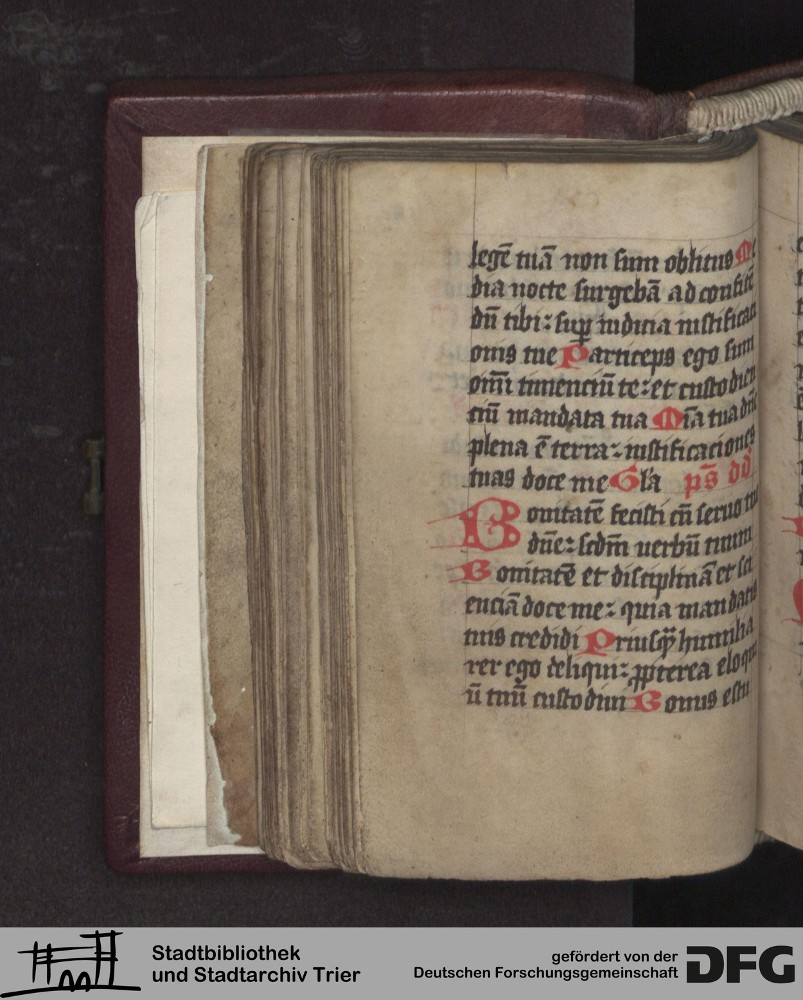 legē tuā non sum oblitus Me
dia nocte surgebā ad confitē
dū tibi: sup iudicia iustificaci
onis tue Particeps ego sum
oīm timenciū te: et custodien
ciū mandata tua Mīa tua dñe
plena ē terra: iustificaciones
tuas doce me Glā ps dd
Bonitatē fecisti cū seruo tuo
dñe: scdm uerbū tuum
Bonitatē et disciplinā et sci
enciā doce me: quia mandatis
tuis credidi Priusq humilia
rer ego deliqui: ppterea eloqui
ū tuū custodiui Bonus es tu
Stadtbibliothek
und Stadtarchiv Trier
gefördert von der
Deutschen Forschungsgemeinschaft
DFG